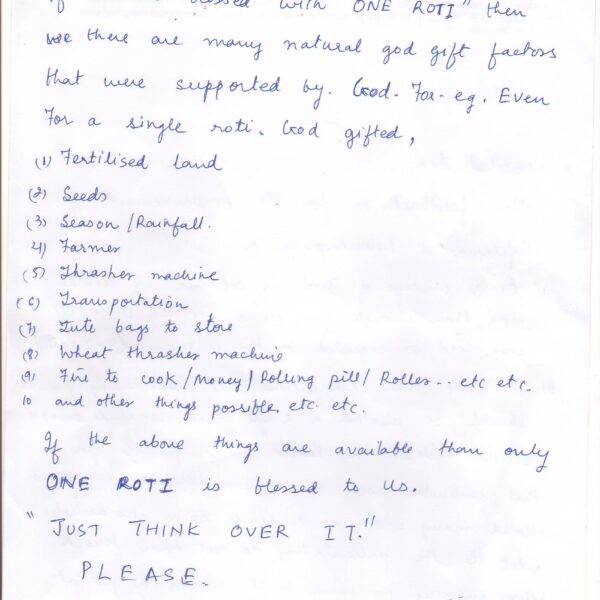 If blessed with ONE ROTI" then
we there are many natural god gift factors
that were supported by. God. For. eg. Even
For a single roti. God gifted,
(1) Fertilised land
(2) Seeds
(3) Season / Rainfall.
(4) Farmer
(5) Thrasher machine
(6) Transportation
(7) Jute bags to store
(8) Wheat thrasher machine
(9) Fire to cook / Money / Rolling pill / Roller .. etc etc.
10 and other things possible. etc. etc.
If the above things are available than only
ONE ROTI is blessed to us.
"JUST THINK OVER IT."
PLEASE.